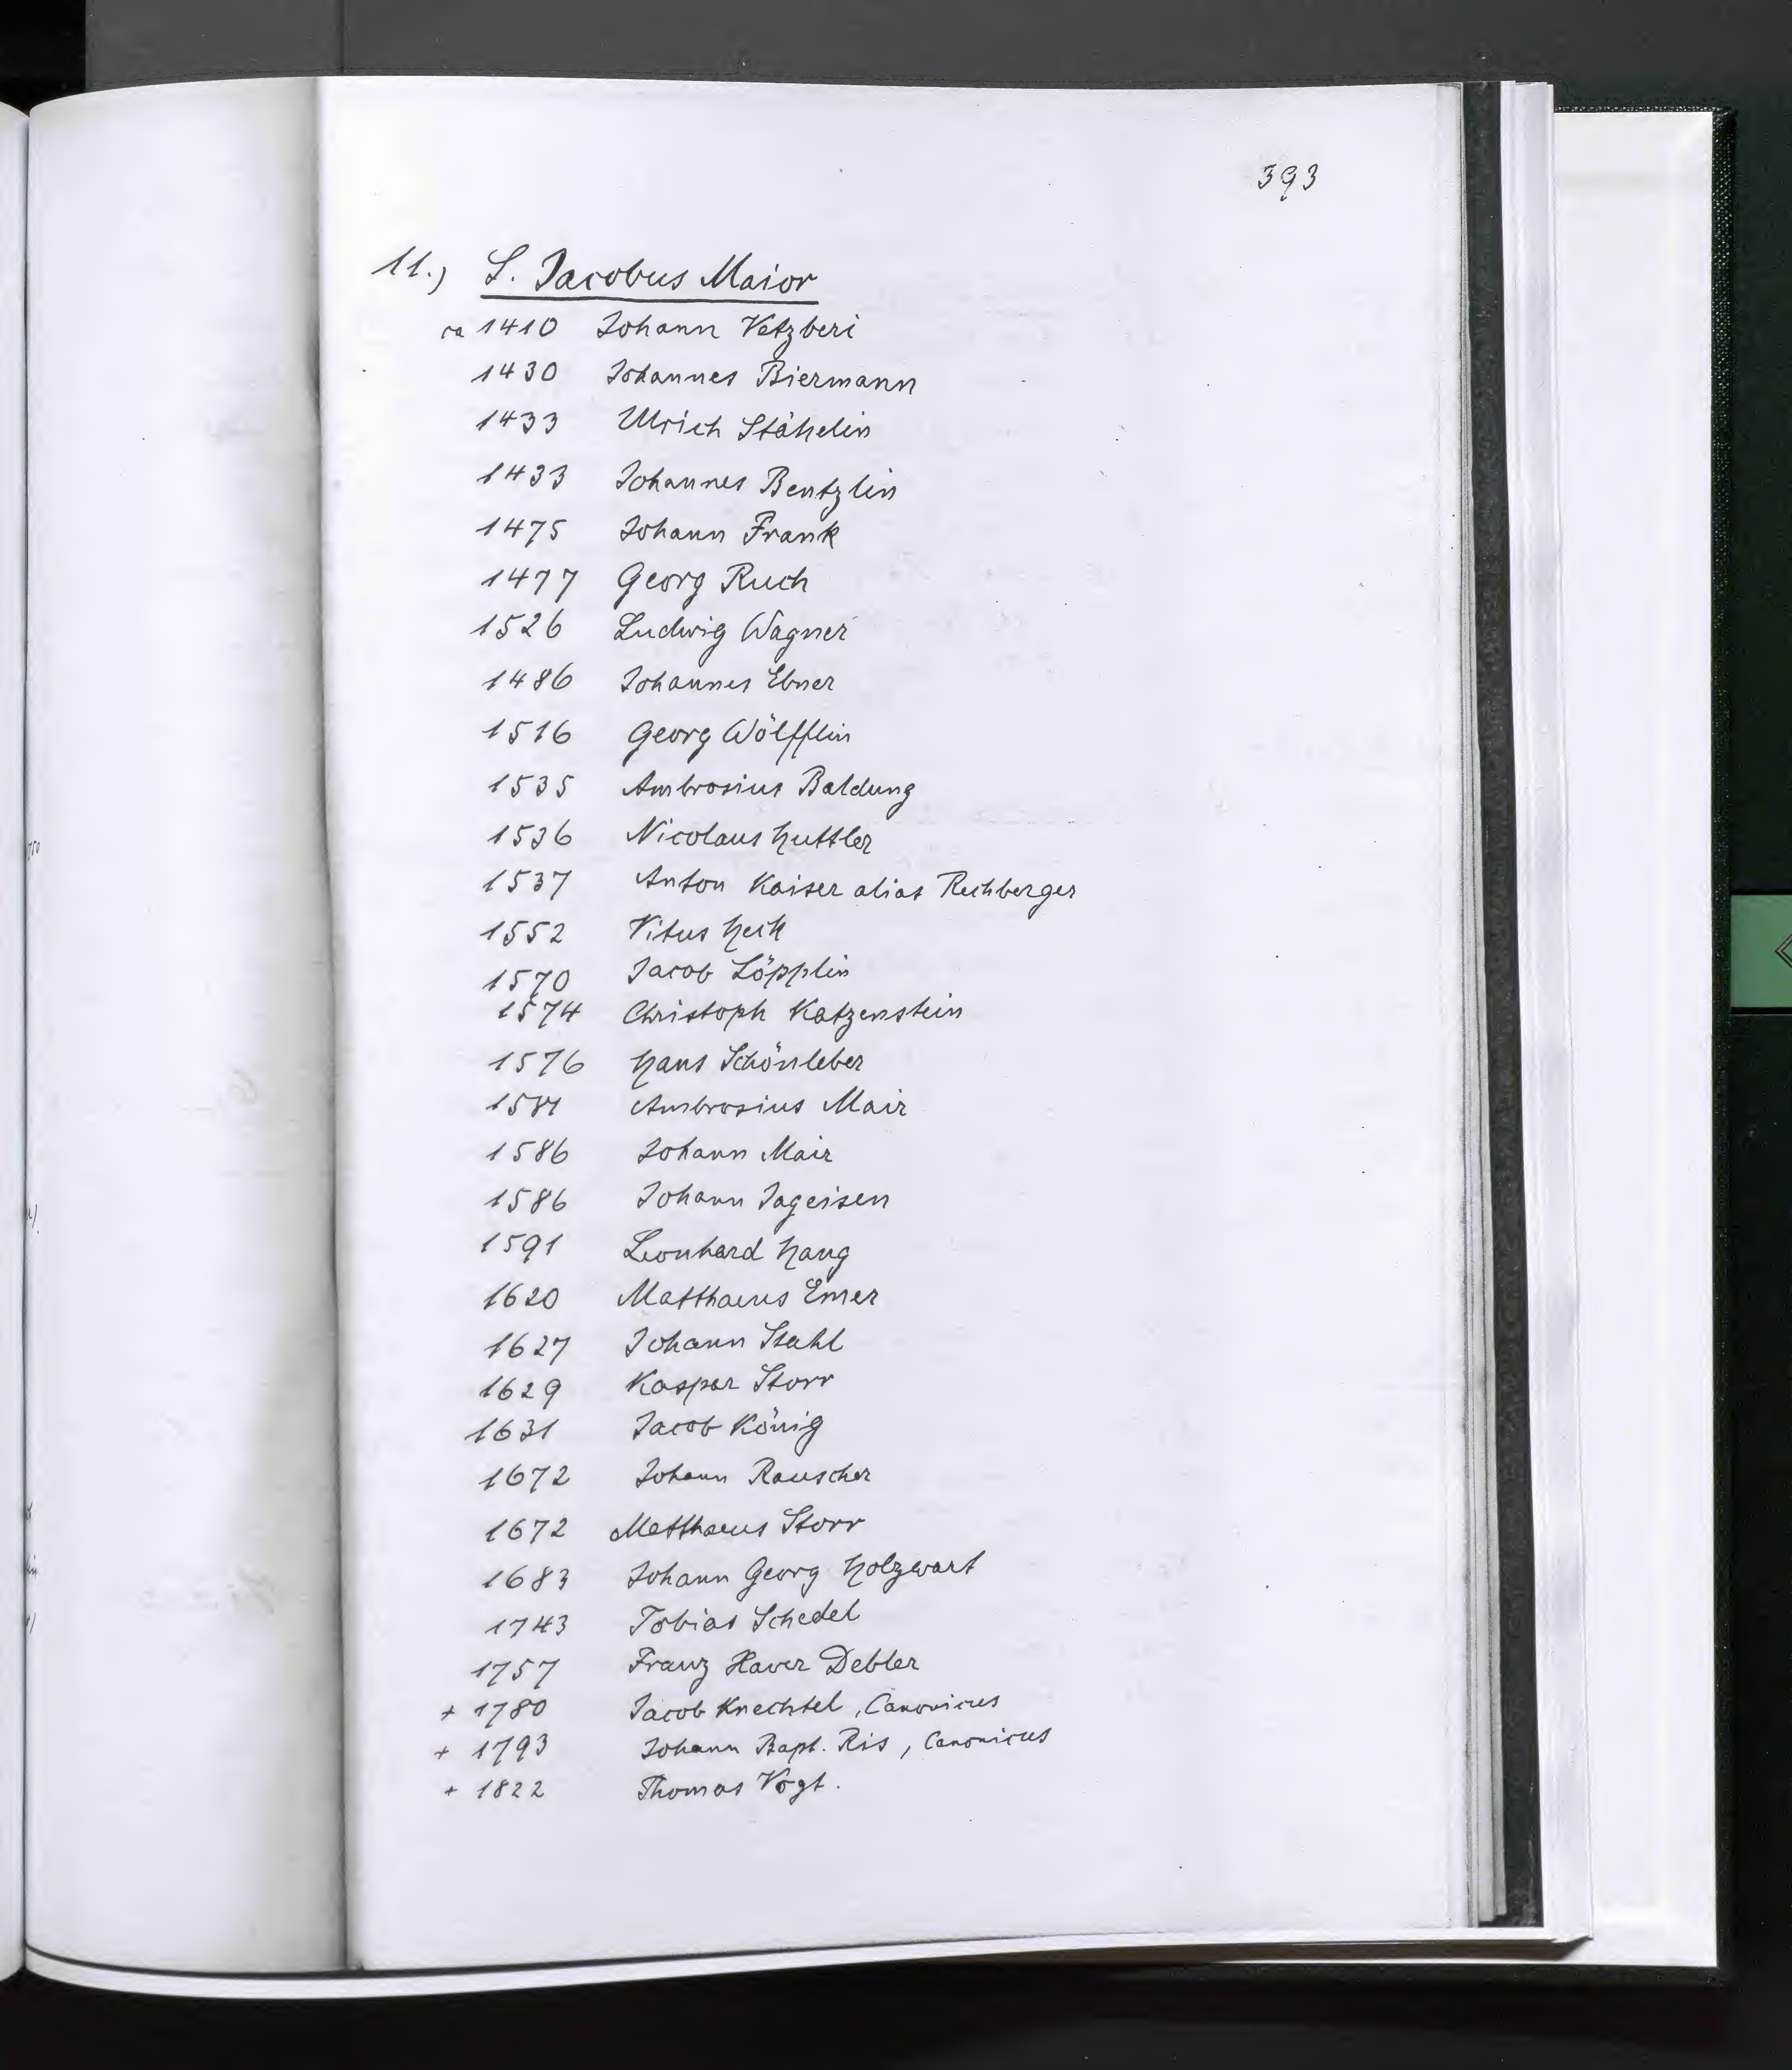 393
11.) S. Jacobus Maior
ca 1410 Johann Vetzberi
1430 Johannes Biermann
1433 Ulrich Stähelin
1433 Johannes Bentzlin
1475 Johann Frank
1477 Georg Ruch
1526 Ludwig Wagner
1486 Johannes Ebner
1516 Georg Wölfflin
1535 Ambrosius Baldung
1536 Nicolaus Huttler
1537 Anton Kaiser alias Rechberger
1552 Vitus Heck
1570 Jacob Löpplin
1574 Christoph Katzenstein
1576 Hans Schönleber
Ambrosius Mair
1586 Johann Mair
1586 Johann Jageisen
1591 Leonhard Haug
1620 Matthaeus Emer
1627 Johann Stahl
1629 Kaspar Storr
1631 Jacob König
1672 Johann Rauscher
1672 Matthaeus Storr
1683 Johann Georg Holzwart
1743 Tobias Schedel
1757 Franz Xaver Debler
+ 1780 Jacob Knechtel, Canonicus
+ 1793 Johann Bapt. Ris, Canonicus
+ 1822 Thomas Vogt.